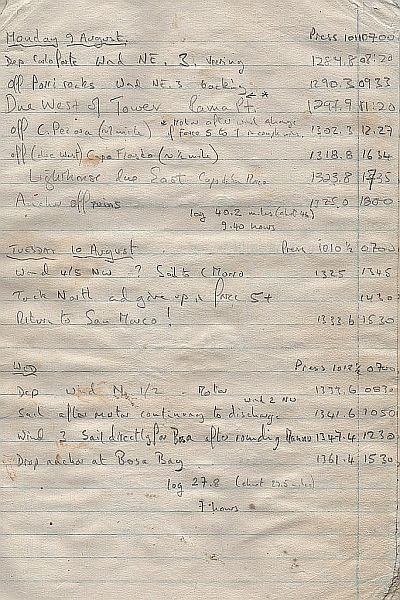 Monday 9 August. Press 1011 0700
Dep Carloforte Wind NE. 3, veering 1284.8 08:20
off Porri rocks Wind NE. 3 backing 1290.3 0933
Due West of Tower Pt. * 1297.9 11:20
off C. Pecora (½ mile) * Motor after wind change if Force 5 to 7 in rough seas. 1302.3 12.27
off (due West) Capo Frasca (1½ mile) 1318.8 1634
Lighthouse due East Capo San Marco 1323.8 1735
Anchor off ruins 1325.0 1800
log 40.2 miles (chart 46)
9.40 hours
Tuesday 10 August Press 1010½ 0700
Wind 4/5 NW -? Sail to C Marco 1325 1345
Tack North and give up in force 5+ 1430
Return to San Marco! 1333.6 1530
Wed Press 1018½ 0700
Dep Wind N, 1/2 - Motor 1333.6 0830
wind 2 NW
Sail after motor continuing to discharge 1341.6 1050
Wind 3 Sail directly for Bosa after rounding Mannu 1347.4 1230
Drop anchor at Bosa Bay 1361.4 1530
log 27.8 (chart 27.5 miles)
7 hours